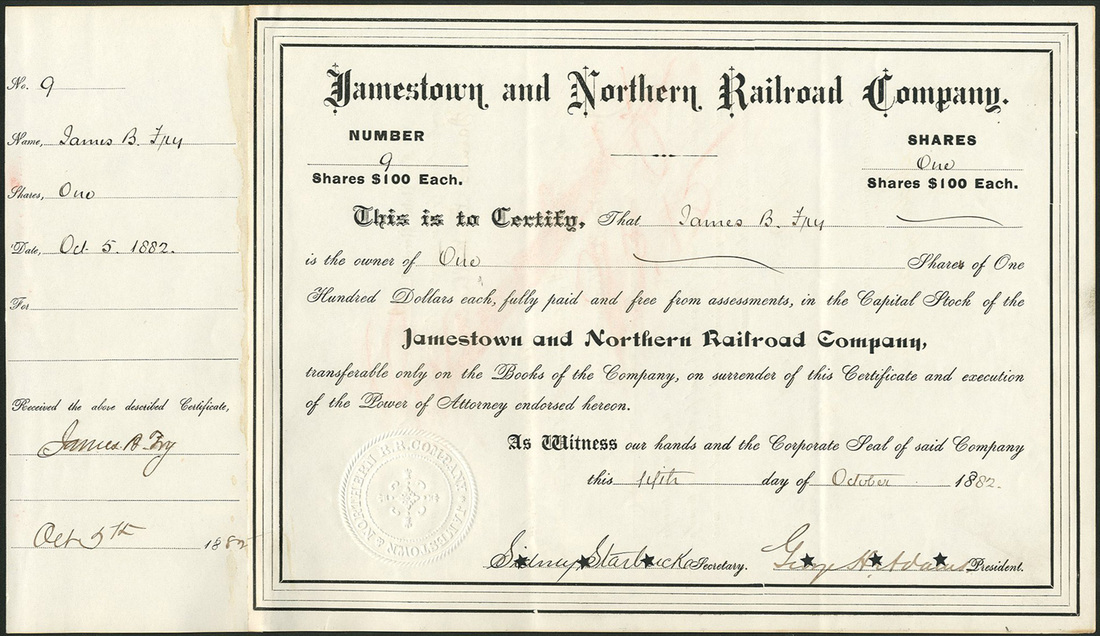 No. 9
Name, James B. Fry
Shares, One
Date, Oct. 5. 1882.
For
Received the above described Certificate,
James B Fry
Oct 5th 1882
Jamestown and Northern Railroad Company.
NUMBER
9
Shares $100 Each.
SHARES
One
Shares $100 Each.
This is to Certify, That James B. Fry
is the owner of One Shares of One
Hundred Dollars each, fully paid and free from assessments, in the Capital Stock of the
Jamestown and Northern Railroad Company,
transferable only on the Books of the Company, on surrender of this Certificate and execution
of the Power of Attorney endorsed hereon.
As Witness our hands and the Corporate Seal of said Company
this fifth day of October 1882.
JAMESTOWN & NORTHERN R.R. COMPANY
Sidney Starbuck Secretary.
George H. Adams President.